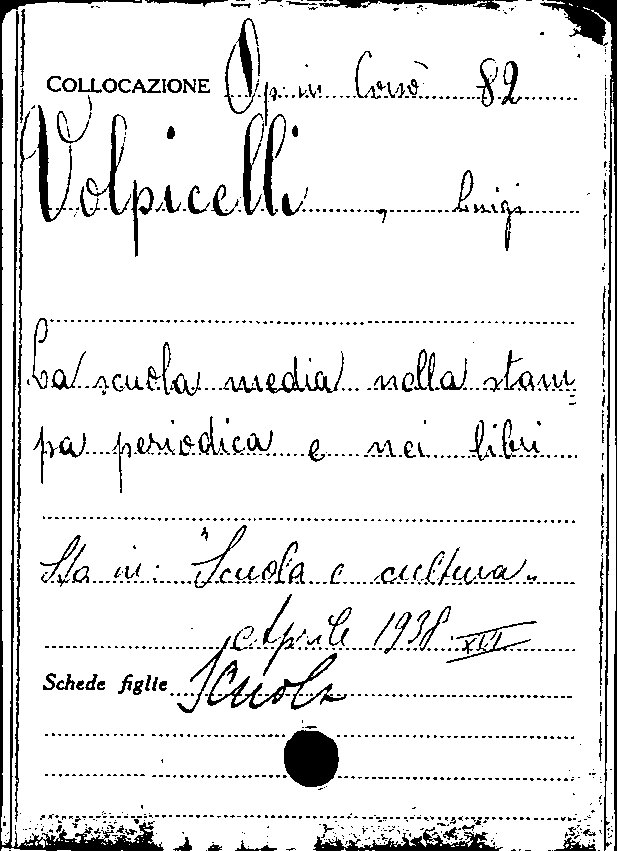 COLLOCAZIONE Op. in Corsò 82
Volpicelli, Luigi
La scuola media nella stam=
pa periodica e nei libri
Sta in: "Scuola e cultura„
Aprile 1938 XVI
Schede figlie Scuola